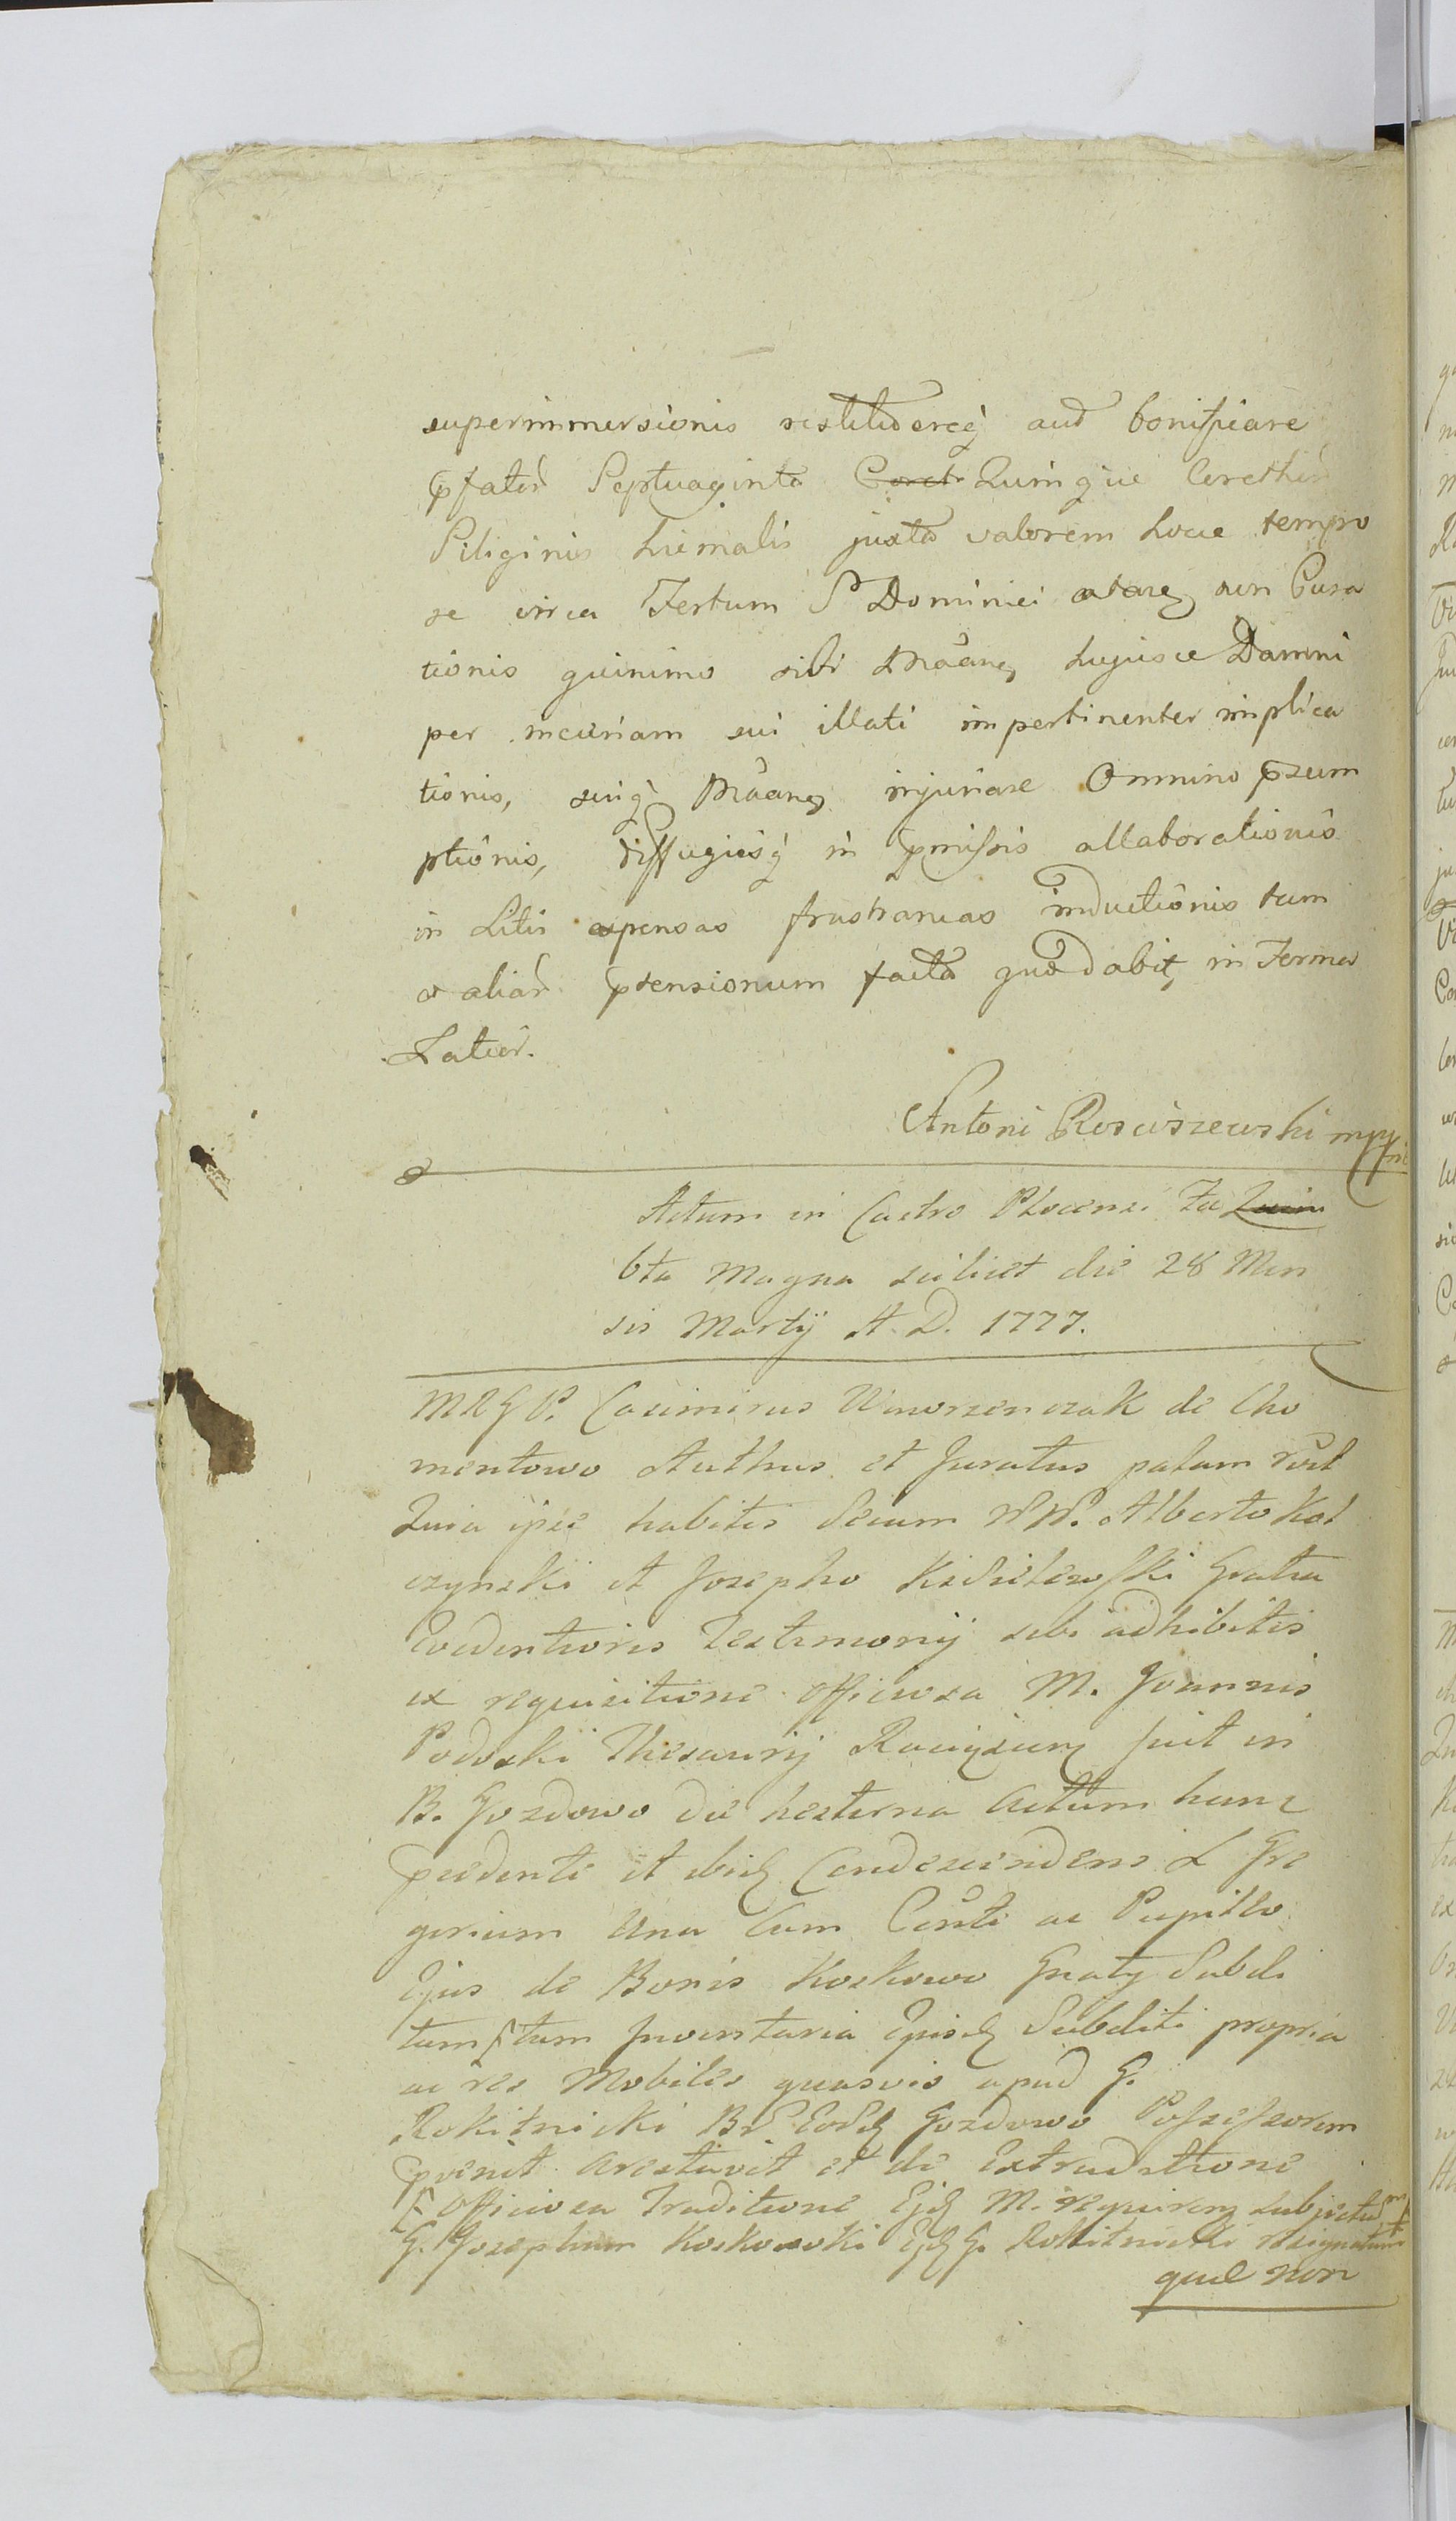 superimmersionis restituereq́ aut bonificare
p̄fator̃ Septuaginta Coret Quinque Corethor̃
Siliginis hiemalis juxta valorem hocce tempo
re circa Festum S Dominici stare, non Cura
tionis quinimo sibi Mãane, hujusce Damni
per incuriam sui illati impertinenter implica
tionis, seuq́ Mãane, injuriose Omnino p̄sum
ptionis, diffugiisq́ in p̄missis allaborationis
in Litis expensas frustraneas inductionis tum
et aliar̃ p̄tensionum facta quo dabit, in Termo
Latior.
Antoni Rosciszewski mpp
Actum in Castro Plocensi Fa Quin
6ta Magna scilicet die 28 Men
sis Martij A. D. 1777.
MRGP. Casimirus Wawrzenczak de Cho
mentowo Authus et Juratus palam rec̃t
Quia ipse habitis Secum NN. Alberto Kal
czynski et Josepho Kisielewski Gratia
Evidentioris Testimonij sibi adhibitis
ex requisitione officiosa M. Joannis
Podoski Thesaurij Raciążien, fuit in
B. Gozdowo die hesterna Actum hunc
p̄cedente et ibid, Condescendens L Gre
gorium Una Cum Con̄te ac Pupillo
Ejus de Bonis Koskowo Gnaty Subdi
tum tum Inventaria Episd, Subditi propria
ac res Mobiles quasvis apud G.
Rokitnicki B̃r. Eord, Gozdowo Possessorem
p̄venit arestavit et de Extraditione
officiosa Traditione Ejd, M. requiren, subjectum
G. Josephum Koskowski Ejd, G. Rokitnicki resignatum
quae non